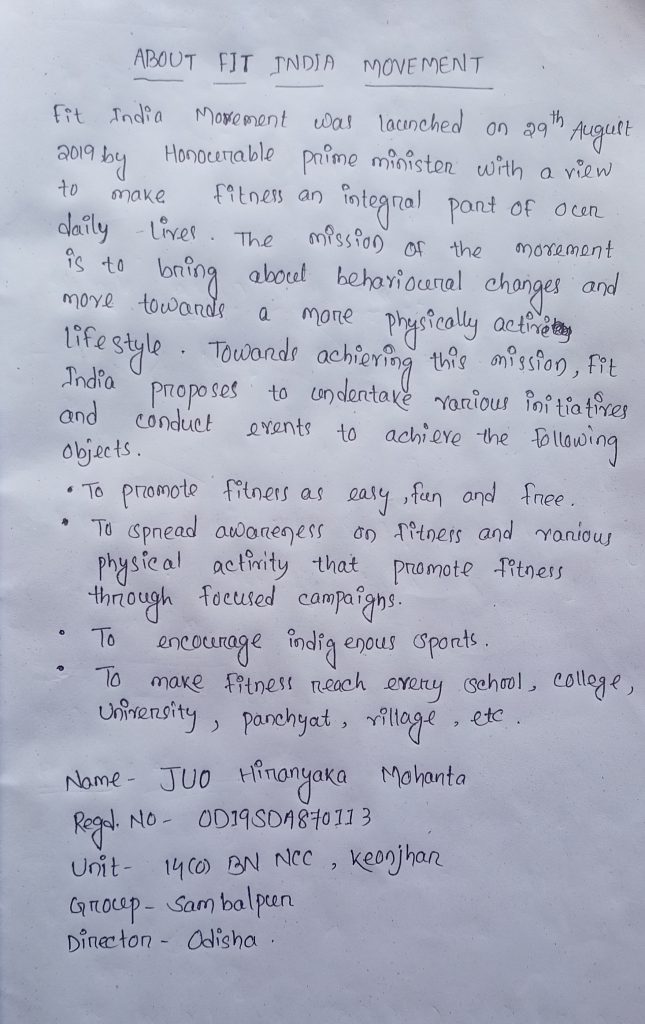 ABOUT FIT INDIA MOVEMENT
Fit India Movement was launched on 29th August
2019 by Honourable prime minister with a view
to make fitness an integral part of our
daily lives. The mission of the movement
is to bring about behavioural changes and
move towards a more physically active
lifestyle. Towards achieving this mission, Fit
India proposes to undertake various initiatives
and conduct events to achieve the following
objects.
• To promote fitness as easy, fun and free.
• To spread awareness on fitness and various
physical activity that promote fitness
through focused campaigns.
• To encourage indigenous sports.
• To make fitness reach every school, college,
University, panchyat, village, etc.
Name - JUO Hiranyaka Mohanta
Regd. No - OD19SDA870113
Unit - 14(O) BN NCC, Keonjhar
Group - Sambalpur
Director - Odisha.